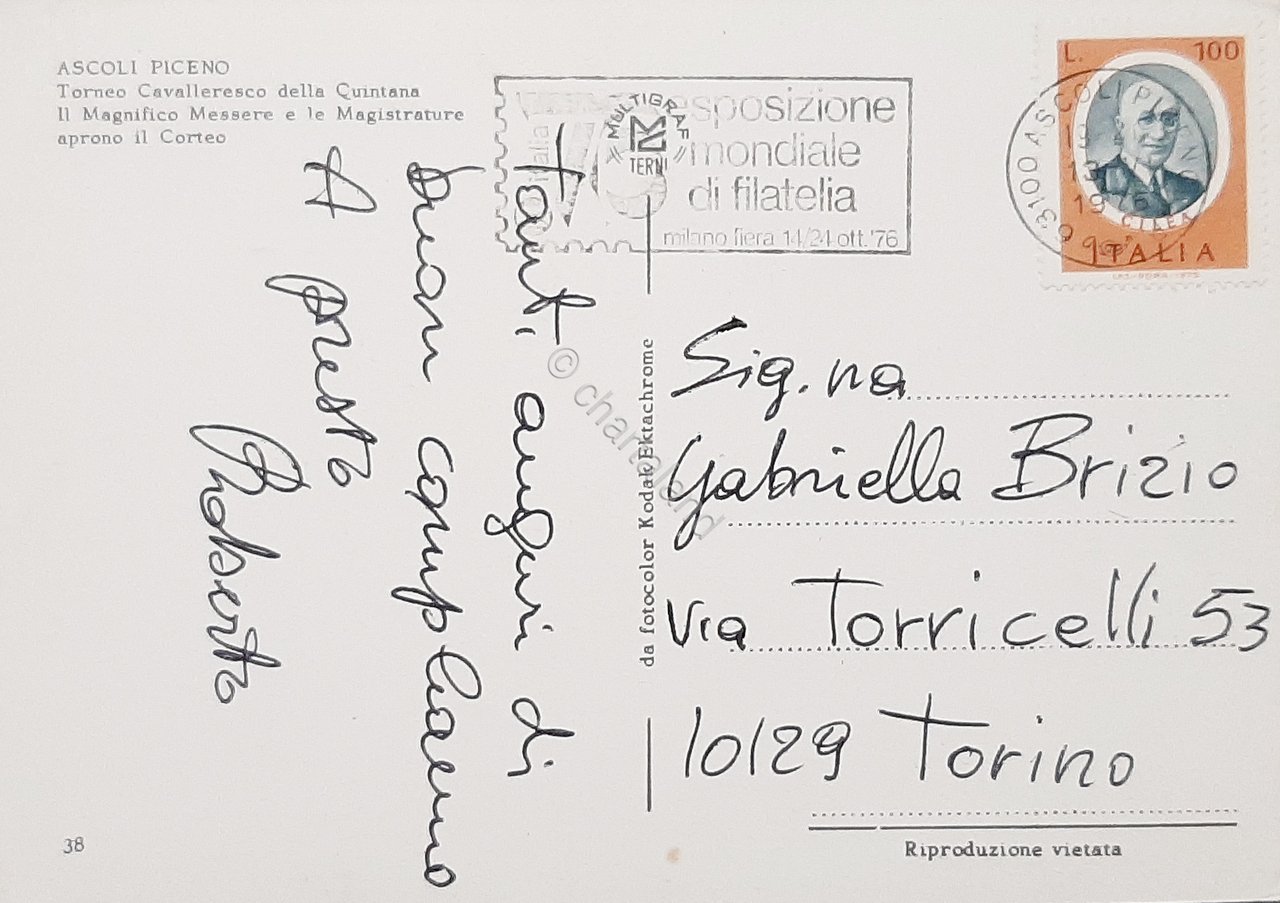 ASCOLI PICENO
Torneo Cavalleresco della Quintana
Il Magnifico Messere e le Magistrature
aprono il Corteo
esposizione
mondiale
di filatelia
milano fiera 14/24 ott. '76
italia
MULTIGRAF
TERNI
L. 100
CILEA
ITALIA
63100 ASCOLI PICENO
19
Tanti auguri di
buon compleanno
A presto
Roberto
da fotocolor Kodak Ektachrome
Sig.na
Gabriella Brizio
Via Torricelli 53
10129 Torino
38
Riproduzione vietata
© chartaland